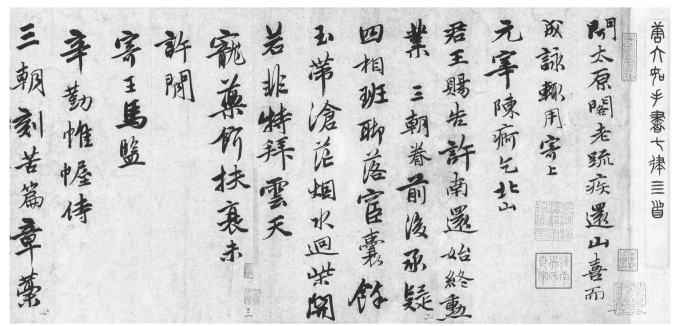 唐六如手書七律三首
聞太原閣老疏疾還山喜而
成詠輒用寄上
元宰陳痾乞北山
君王賜告許南還始終勳
業三朝眷前後承疑
四相班聊落宦囊餘
玉帶滄茫烟水迥柴關
若非特拜雲天
寵藥餌扶衰未
許閒
寄王馬監
辛勤帷幄侍
三朝刻苦篇章藁